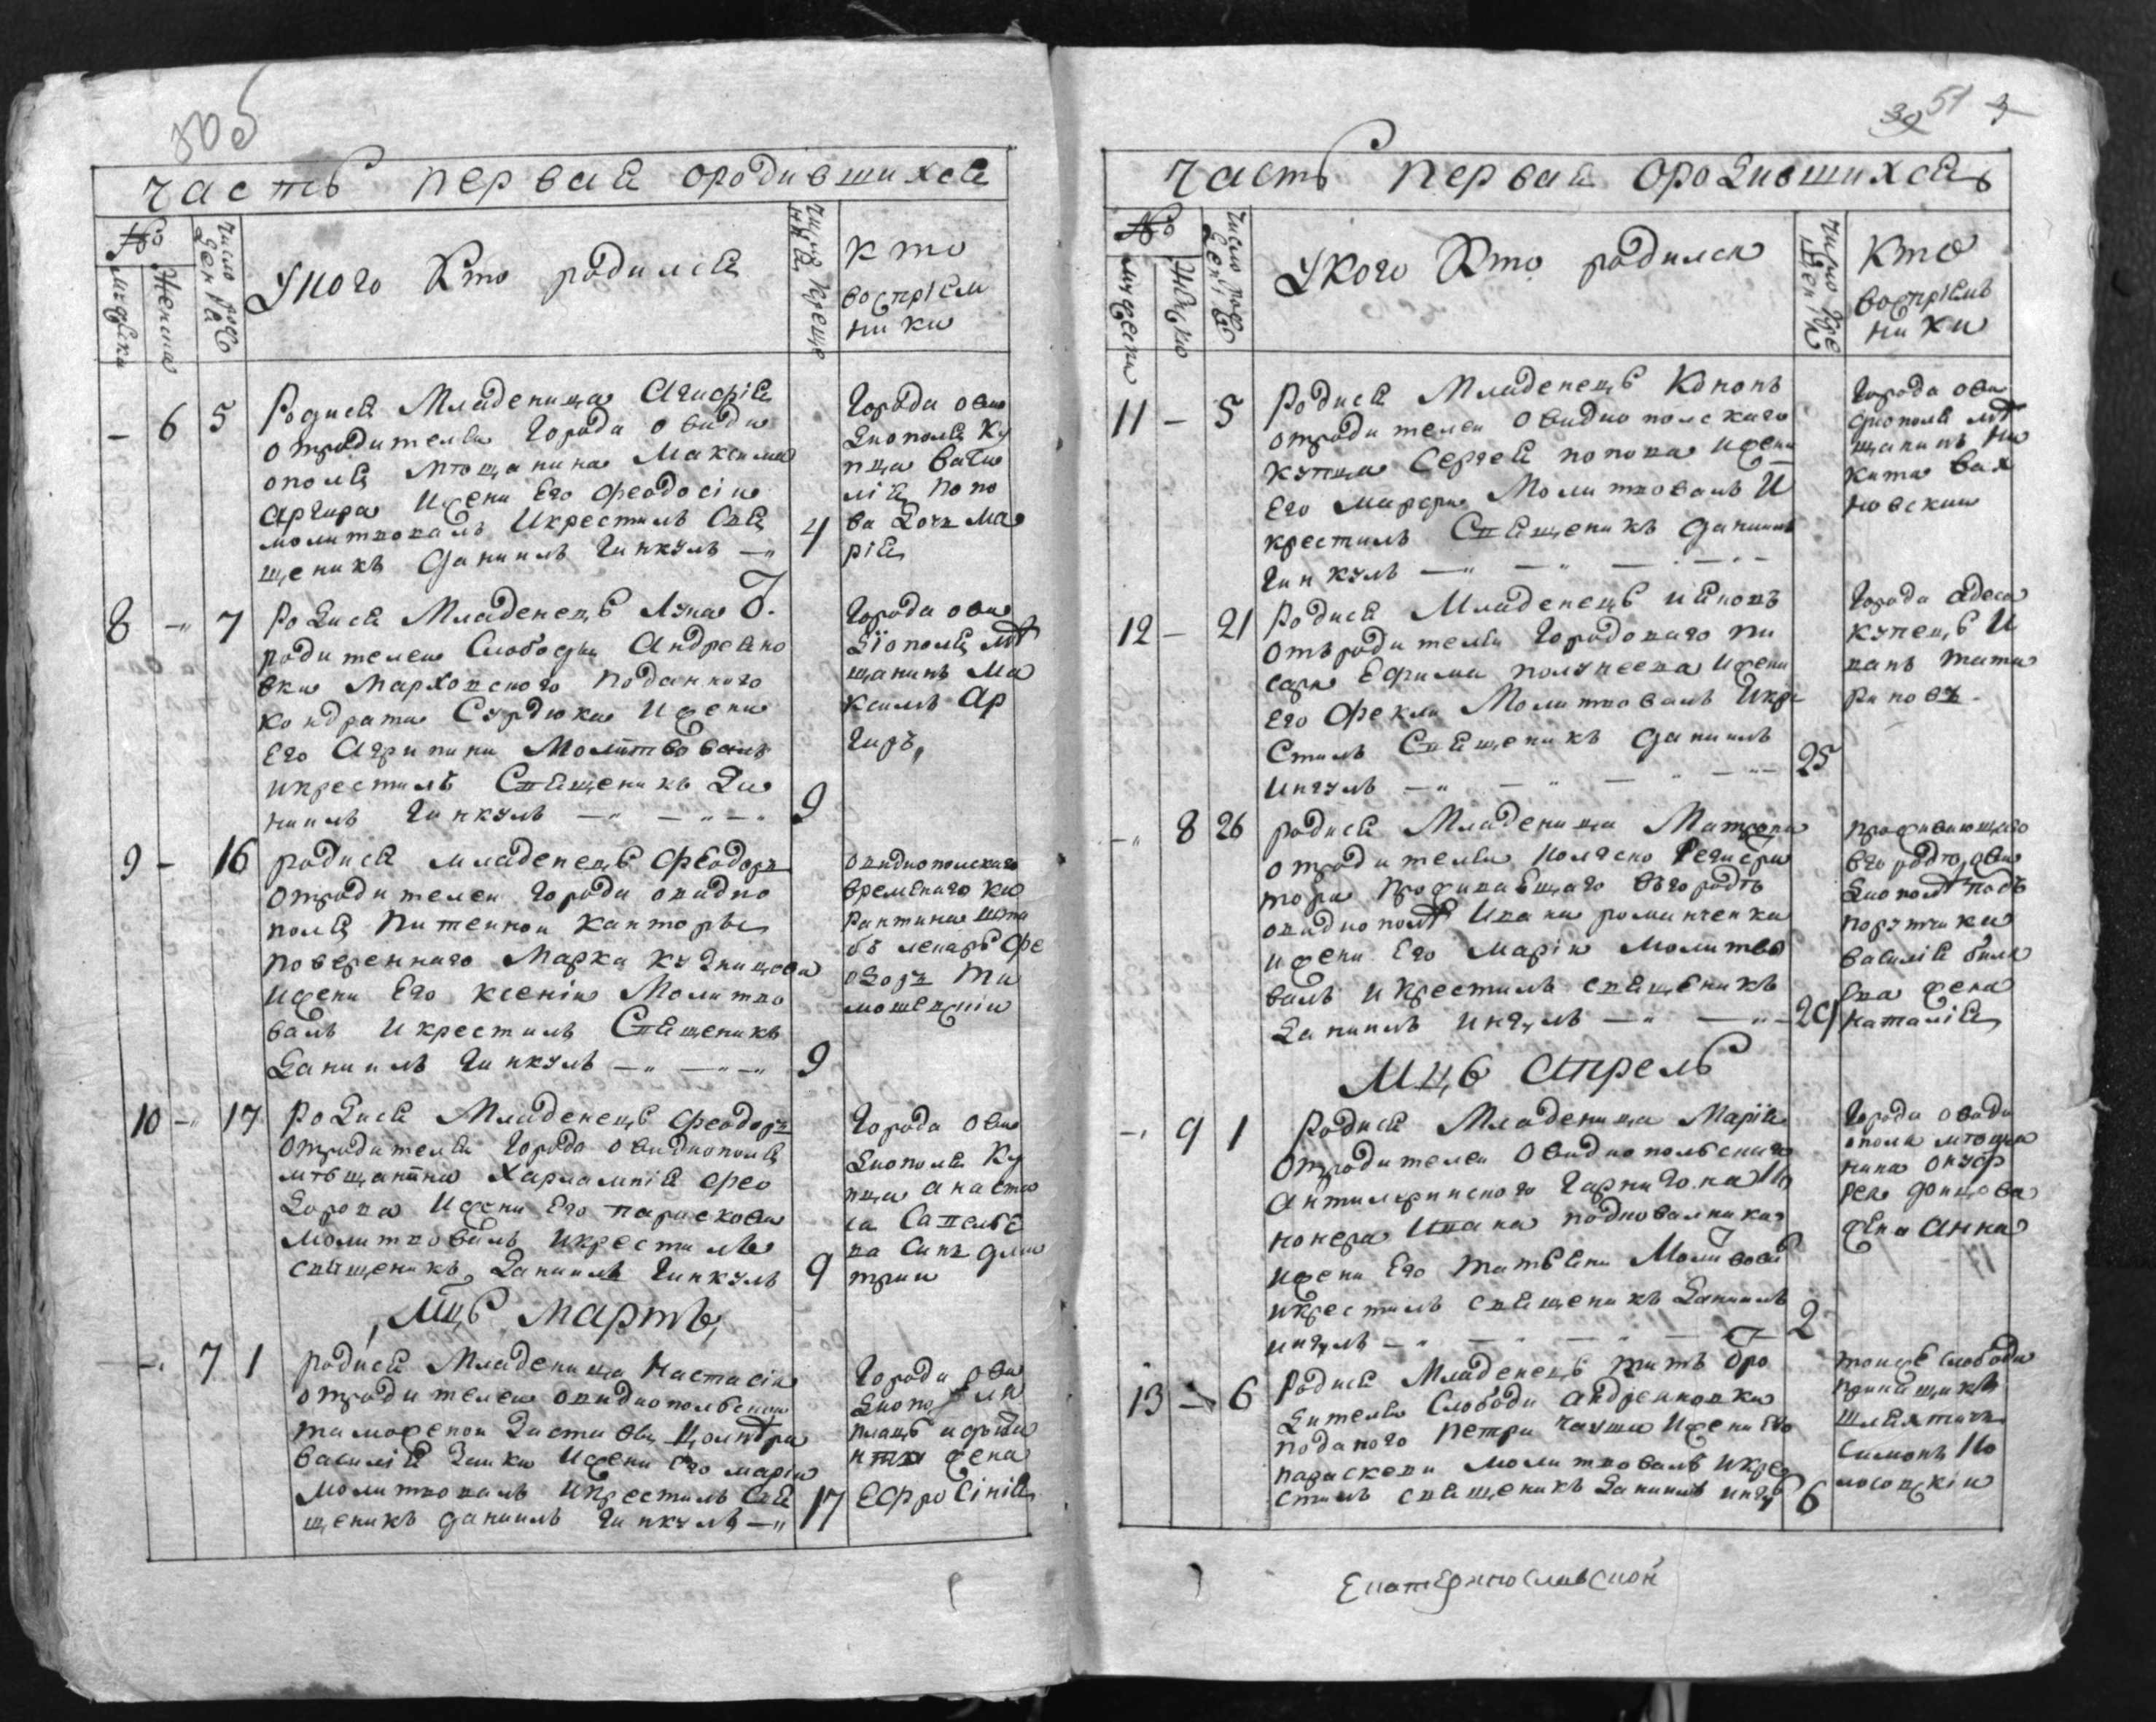 50об
Часть первая ородившихся
№
Мужеска
Женска
Число рож
ден їя
Укого Кто родился
Число креще
нїя
Кто
воспрієм
ники
- 6 5
Родися Младеница Агафія
отродителеи Города Овиди
ополя мѣщанина Максима
Аргира Ижени Его Феодосіи
молитвовалъ Икрестилъ Свя
щеникъ Даниилъ Гинкулъ
4
Города Ови
диополя Ку
пца Васи
лія Попо
ва Дочъ Ма
рія
8 - 7
Родися Младенецъ Лука Ѿ
родителеи Слободы Андреяно
вки Марховского Поданного
Кондрати Сурдюка Ижени
Его Агрипини Молитвовалъ
икрестилъ Священикъ Да
ниилъ Гинкулъ
9
Города Ови
діополя мѣ
щанинъ Ма
ксимъ Ар
гиръ,
9 - 16
родися младенецъ Феодоръ
отродителеи Города овидио
поля Питеинои Канторы
повереннаго Марка Кузницова
Ижени Его Ксеніи Молитво
валъ Икрестилъ Священикъ
Даниилъ Гинкулъ
9
овидиополскаго
временаго ка
рантина шта
бъ лекаръ Фе
одоръ Ти
мошевскіи
10 - 17
Родися Младенецъ Феодоръ
Отродителеи Города Овидиополя
мѣщанина Харлампія Фео
дорова Ижени Его параскови
Молитвовалъ Икрестилъ
священикъ Даниилъ Гинкулъ
9
Города Ови
диополя Ку
пца Анаста
са
на Синъ Дми
трии
Мцъ Мартъ
- 7 1
родися Младеница Настасія
отродителеи овидиопольскои
таможенои Заставы
Василія Заики Ижени Его маріи
Молитвовалъ Икрестилъ Свя
щеникъ Даниилъ Гинкулъ
17
Города Ови
диополя
плацъ
жена
Ефросінія
30 51
Часть первая Ородившихся
№
Мужески
Число рож
ден їя
Укого Кто родился
Число кре
щен їя
Кто
воспрієм
ники
11 - 5
Родися Младенецъ Кононъ
отродителеи Овидиополскаго
купца Сергея попова Ижени
Его Марфи Молитвовалъ И
крестилъ Священикъ Даниилъ
Гинкулъ
Города Ови
диополя мѣ
щанинъ Ни
кита Вах
новскии
12 - 21
Родися Младенецъ иаковъ
Отъродителеи Городоваго пи
саря Ефима полунеева Ижени
Его Фекли Молитвовалъ Икре
Стилъ Священикъ Даниилъ
Инкулъ
25
Города Адеса
купецъ И
ванъ Тата
риновъ
- 8 26
родися Младеница Матрона
отродителеи Колеско Регистра
тора проживавщаго въгородѣ
овидиополѣ Ивана романченка
ижени Его Маріи Молитво
валъ икрестилъ священикъ
Даниилъ Инкулъ
29
проживающаго
въгородѣ Ови
диополѣ подъ
поручика
василія
ва жена
наталія
Мцъ Апрель
- 9 1
Родися Младеница Марія
Отродителеи Овидиопольскаго
Антилеринского Гарнизона Ка
нонера Ивана подковалника
ижени Его Татьяни Молитвова
икрестилъ священикъ Даниилъ
инкулъ
2
Города Овиди
ополя мѣща
нина Онуф
рея Донцова
жена Анна
13 - 6
Родися Младенецъ титъ Ѿро
дителеи Слободи Андреяновки
поданого Петра Чауша Ижени Его
параскеви Молитвовалъ Икре
стилъ священикъ Даниилъ инкул
6
тоиже слободи
прикащикъ
шляхтичъ
Симонъ Ко
лосовскіи
Екатеринославской